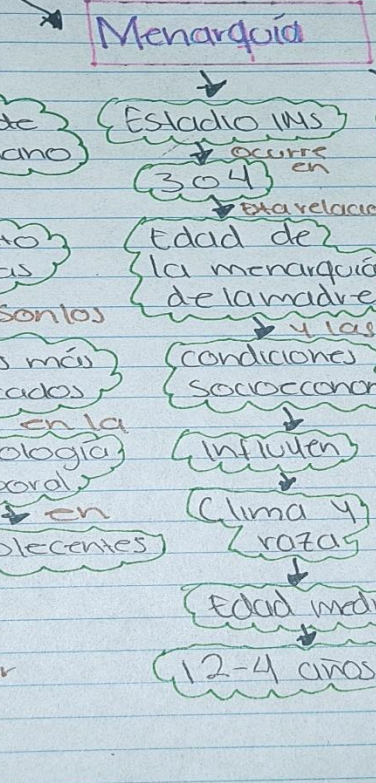 Menarquía
Estadio IMS
ocurre
en
3 o 4
Esta relacio
Edad de
la menarquia
de la madre
y las
condiciones
socioeconor
Influyen
Clima y
razas
Edad medi
12-4 años
de
ano
to
as
Son los
s más
cados
en la
ología
oral
en
olecentes
r